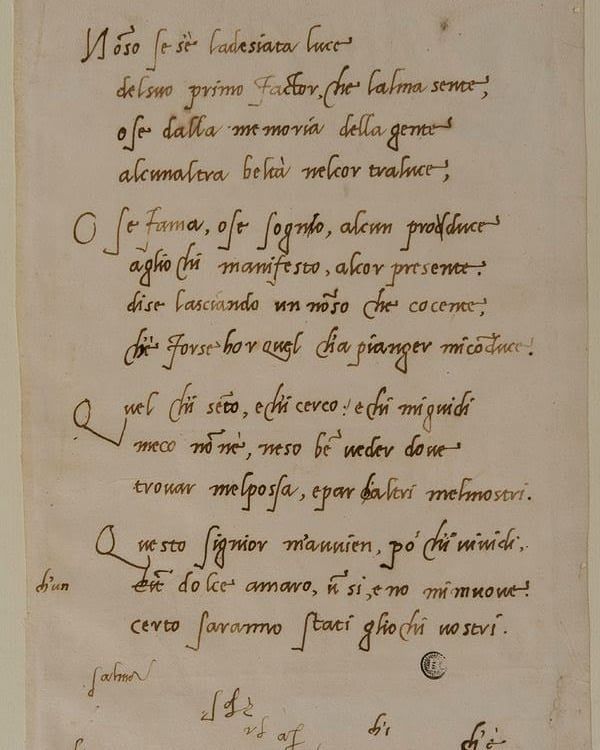 Nõso se s'è ladesiata luce
delsuo primo factor, che lalma sente,
ose dalla memoria della gente
alcunaltra beltà nelcor traluce,
O se fama, ose sognio, alcun prodduce
aglio chi manifesto, alcor presente.
dise lasciando un nõso che cocente,
ch'è forse hor quel ch'a pianger micõduce.
Quel ch'i sẽto, e ch'i cerco: e chi miguidi
meco nõ né, neso bẽ ueder doue
trouar melpossa, e par ch'altri melmostri.
Questo signior m'auuien, po' ch'i uiuidi,
ch'un
dolce amaro, ũ si, e no mi muoue.
certo saranno stati gliochi uostri.
salmo
ch'i
ch'è